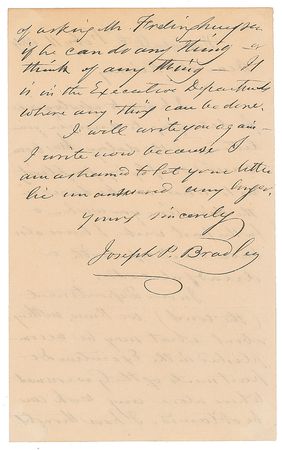 of asking Mr Frelinghuysen
if he can do any thing or
think of any thing — It
is in the Executive Departments
where any thing can be done.
I will write you again —
I write now because I
am ashamed to let your letter
lie unanswered any longer.
Yours sincerely
Joseph P. Bradley